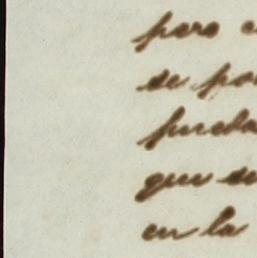 pero
se po
pueda
que se
en la